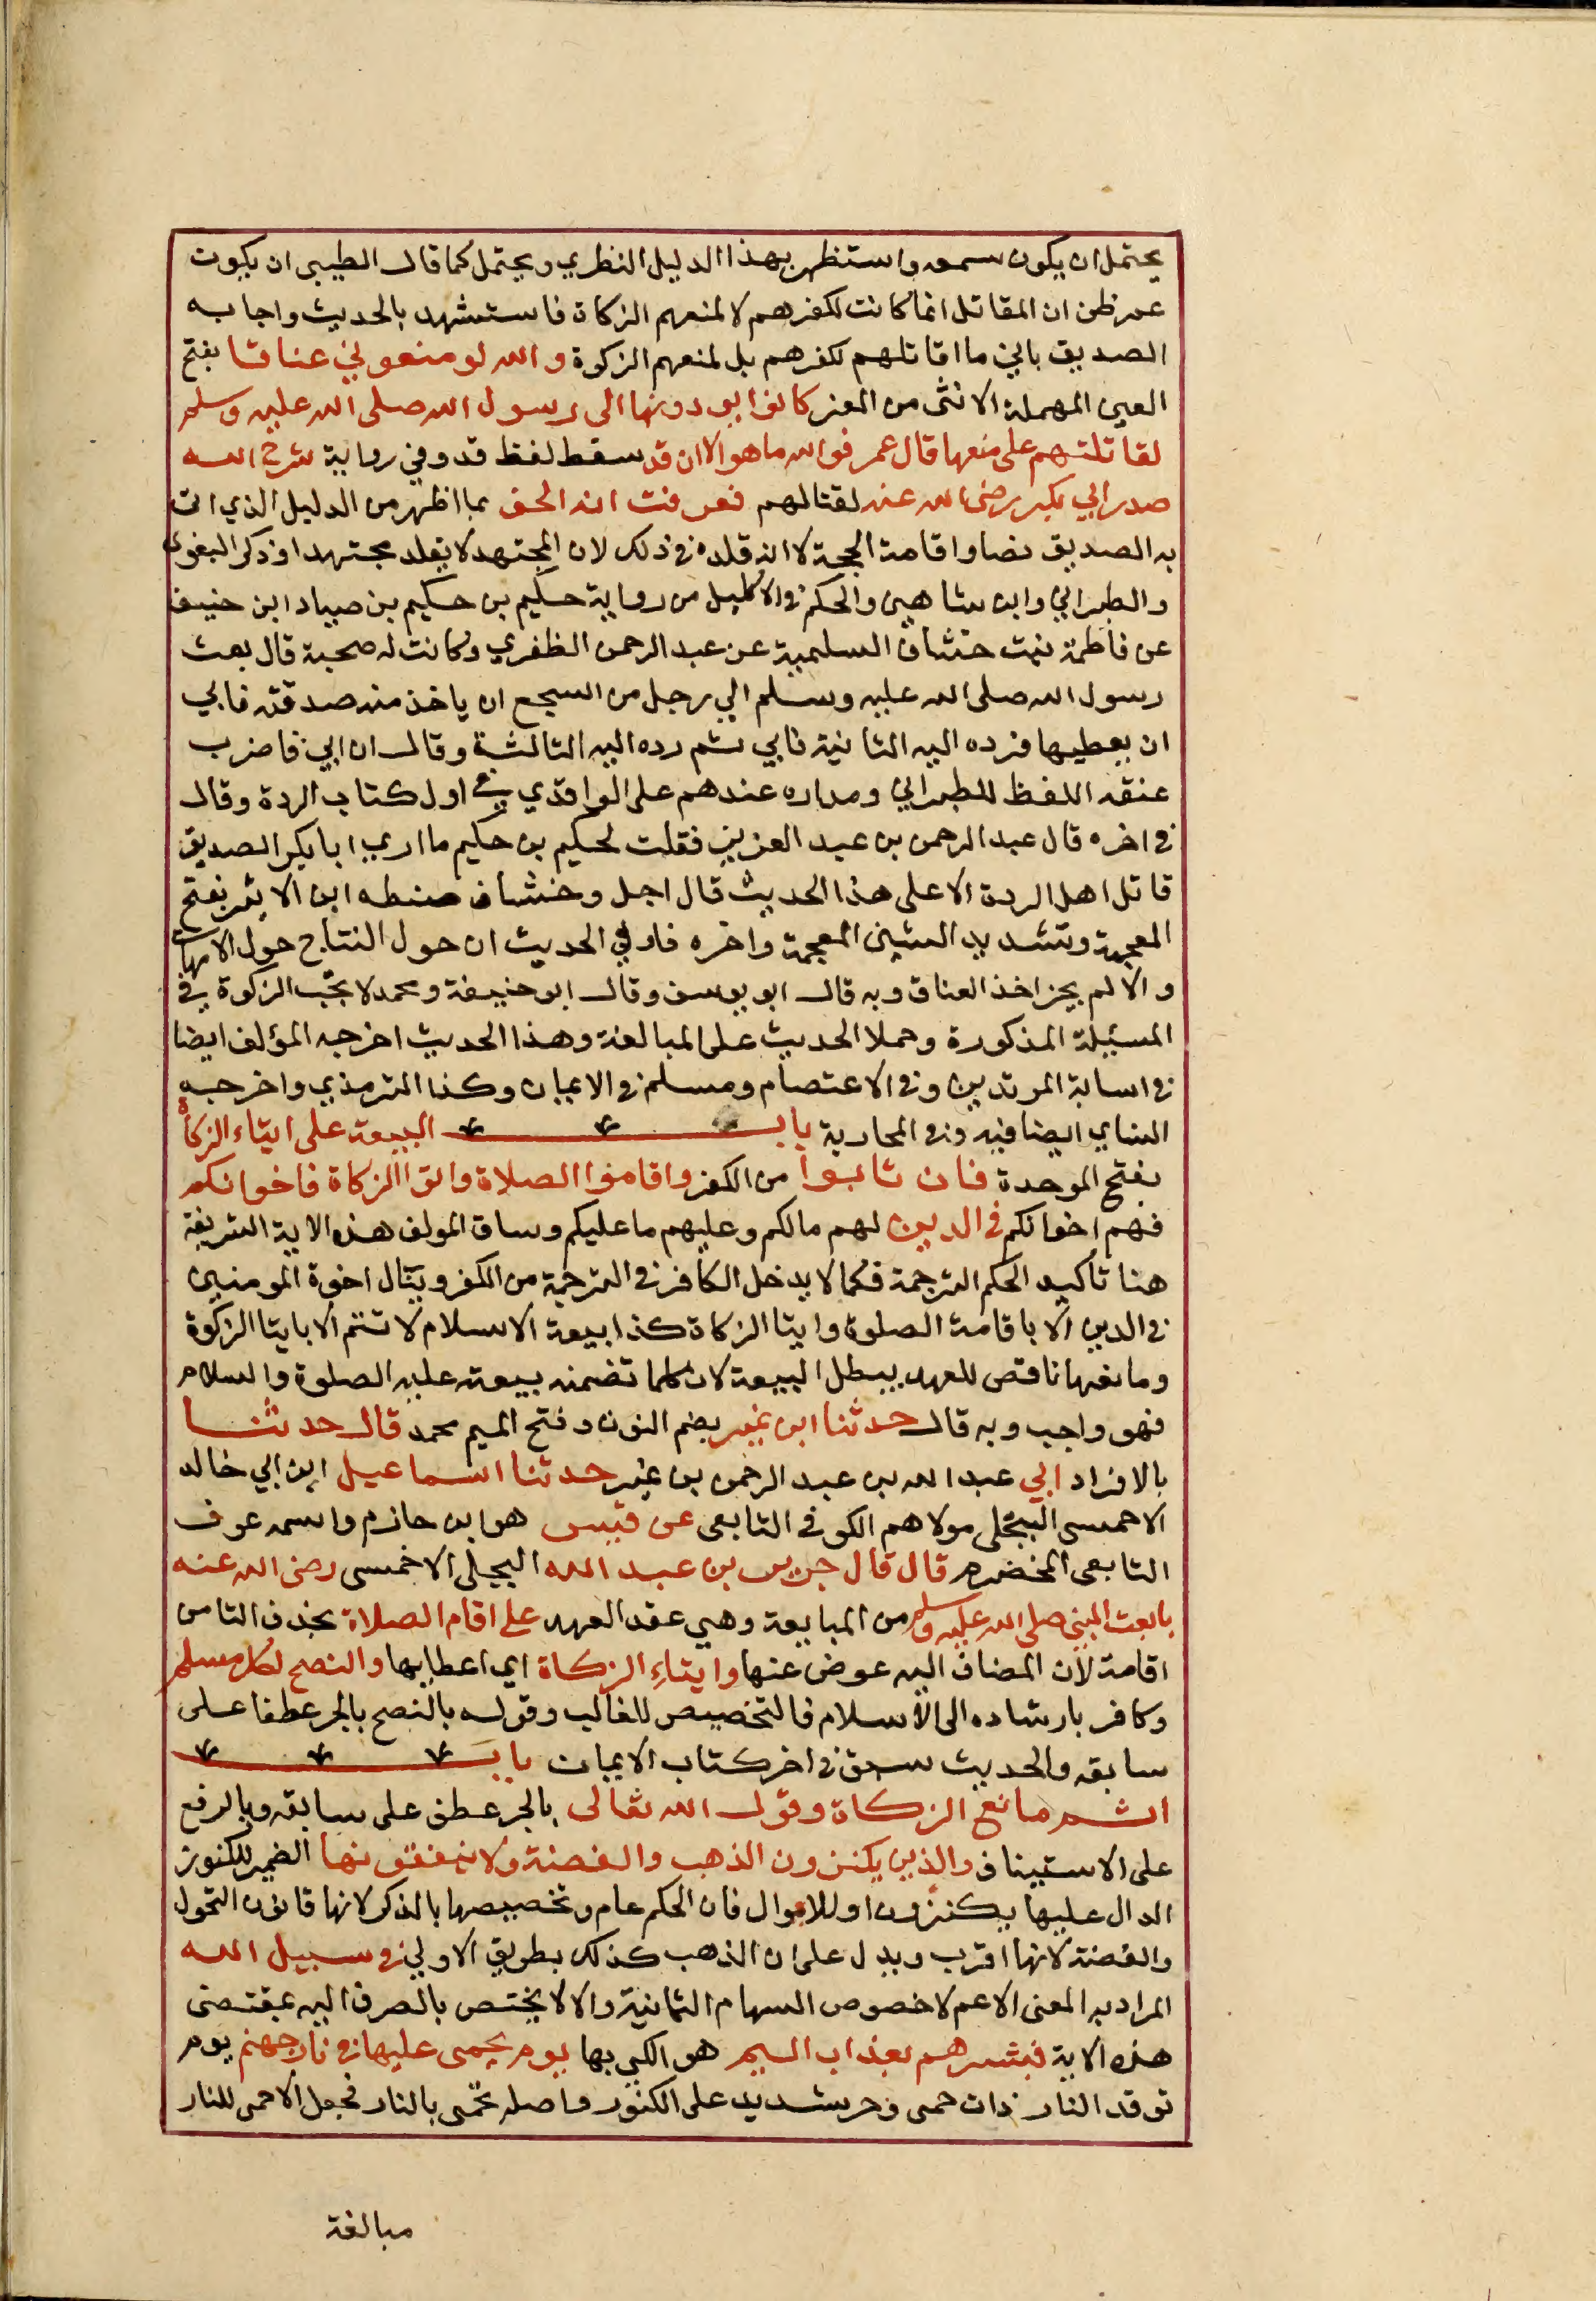 يحتمل ان يكون سمعه واستظهر بهذا الدليل النظري ويحتمل كما قال الطيبي ان يكون
عمر ظن ان المقاتل انما كانت لكفرهم لا لمنعهم الزكاة فاستشهد بالحديث واجابه
الصديق باني ما اقاتلهم لكفرهم بل لمنعهم الزكوة والله لو منعوني عناقا بفتح
العين المهملة الانثى من المعز كانوا يودونها الى رسول الله صلى الله عليه وسلم
لقاتلتهم على منعها قال عمر فوالله ما هو الا ان قد سقط لفظ قد وفي رواية شرح الله
صدر ابي بكر رضي الله عنه لقتالهم فعرفت انه الحق بما اظهر من الدليل الذي اتى
به الصديق نصا واقامة الحجة لا انه قلده في ذلك لان المجتهد لا يقلد مجتهدا وذكر البغوي
والطبراني وابن شاهين والحكم في الاكليل من رواية حكيم بن حكيم بن صباد ابن حنيف
عن فاطمة بنت خشاف السليمية عن عبد الرحمن الظفري وكانت له صحبة قال بعث
رسول الله صلى الله عليه وسلم الي رجل من السجع ان ياخذ منه صدقته فابي
ان يعطيها فرده اليه الثانية فابي ثم رده اليه الثالثة وقال ان ابي فاضرب
عنقه اللفظ للطبراني ومداره عندهم على الواقدي في اول كتاب الردة وقال
في اخره قال عبد الرحمن بن عبد العزيز فقلت لحكيم بن حكيم ما اري ابا بكر الصديق
قاتل اهل الردة الا على هذا الحديث قال اجل وخشاف ضبطه ابن الاثير بفتح
المعجمة وتشديد الشين المعجمة واخره فاء وفي الحديث ان حول النتاج حول الامهات
والا لم يجز اخذ العناق وبه قال ابو يوسف وقال ابو حنيفة ومحمد لا تجب الزكوة في
المسئيلة المذكورة وحملا الحديث على المبالغة وهذا الحديث اخرجه المؤلف ايضا
في اسابة المرتدين وفي الاعتصام ومسلم في الايمان وكذا الترمذي واخرجه
النساي ايضا فيه وفي المحاربة باب البيعة على ايتاء الزكاة
بفتح الموحدة فان تابوا من الكفر واقاموا الصلاة واتوا الزكاة فاخوانكم
فهم اخوانكم في الدين لهم مالكم وعليهم ما عليكم وساق المولف هذه الاية الشريفة
هنا تأكيد الحكم الترجمة فكما لا يدخل الكافر في الترجمة من الكفر وينال اخوة المومنين
في الدين الا باقامة الصلوة وايتا الزكاة كذا بيعة الاسلام لا تتم الا بايتا الزكوة
ومانعها ناقض للعهد يبطل البيعة لان كلما تضمنه بيعته عليه الصلوة والسلام
فهو واجب وبه قال حدثنا ابن نمير بضم النون وفتح الميم محمد قال حدثنا
بالافراد ابي عبد الله بن عبد الرحمن بن نمير حدثنا اسماعيل ابن ابي خالد
الاحمسى البجلي مولاهم الكوفي التابعي عن قيس هو ابن حازم واسمه عوف
التابعي المخضرم قال قال جرير بن عبد الله البجلي الاخمسى رضي الله عنه
بايعت النبي صلى الله عليه وسلم من المبايعة وهي عقد العهد على اقام الصلاة بحذف التا من
اقامة لأن المضاف اليه عوض عنها وايتاء الزكاة اي اعطايها والنصح لكل مسلم
وكافر بارشاده الى الاسلام فالتخصيص للغالب وقوله بالنصح بالجر عطفا على
سابقه والحديث سبق في اخر كتاب الايمان باب
اثم مانع الزكاة وقول الله تعالى بالجر عطف على سابقه وبالرفع
على الاستيناف والذين يكنزون الذهب والفضة ولا ينفقونها الضمير للكنوز
الدال عليها يكنزون او للاموال فان الحكم عام وتخصيصها بالذكر لانها قانون التمول
والفضة لانها اقرب ويدل على ان الذهب كذلك بطريق الاولي في سبيل الله
المراد به المعنى الاعم لا خصوص السهام الثمانية والا لا يختص بالصرف اليه بمقتضى
هذه الاية فبشرهم بعذاب اليم هو الكي بها يوم يحمى عليها في نار جهنم يوم
توقد النار ذات حمى وحر شديد على الكنوز واصله تحمى بالنار فجعل الاحمى للنار
مبالغة